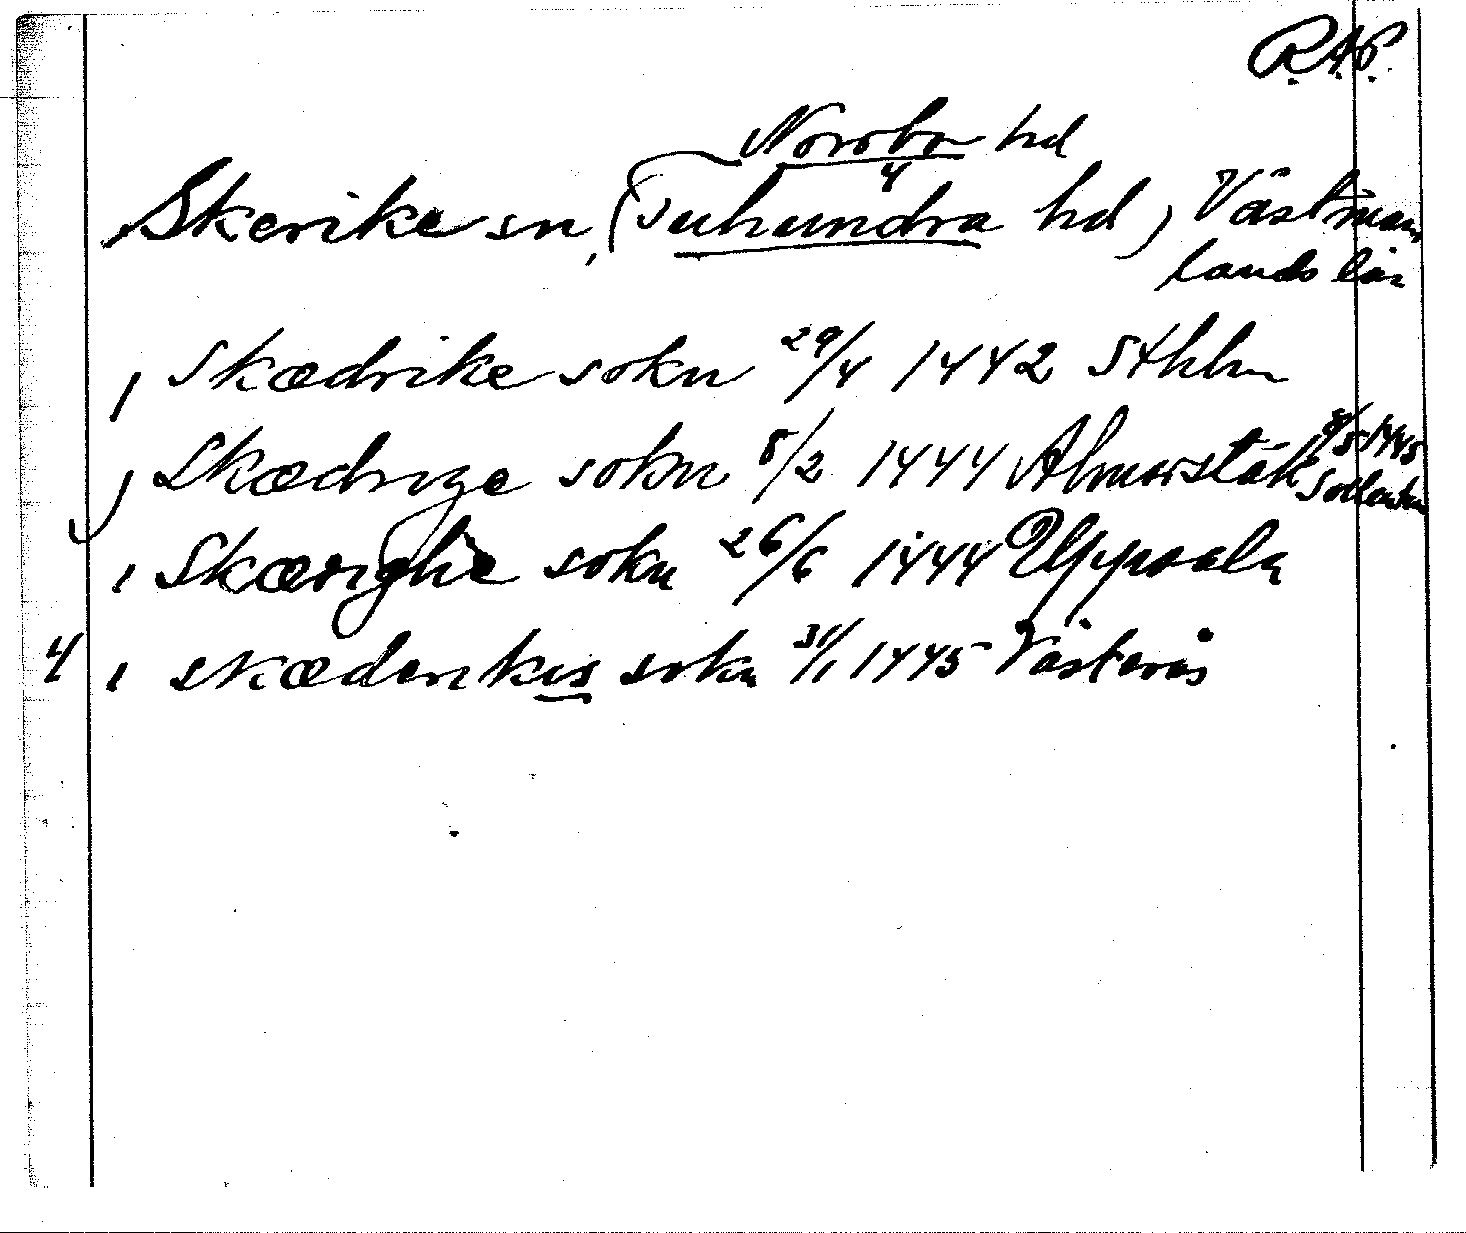 R.A.P.
Norrbo hd
Skerike sn, (Tuhundra hd) Västman
lands län
, Skædrike sokn 29/4 1442 Sthlm
, Skædrige sokn 8/2 1444 Almarstäk 8/5 1445
Sollentuna
, Skærighe sokn 26/6 1444 Uppsala
4 , skæderikis sokn 31/1 1445 Västerås